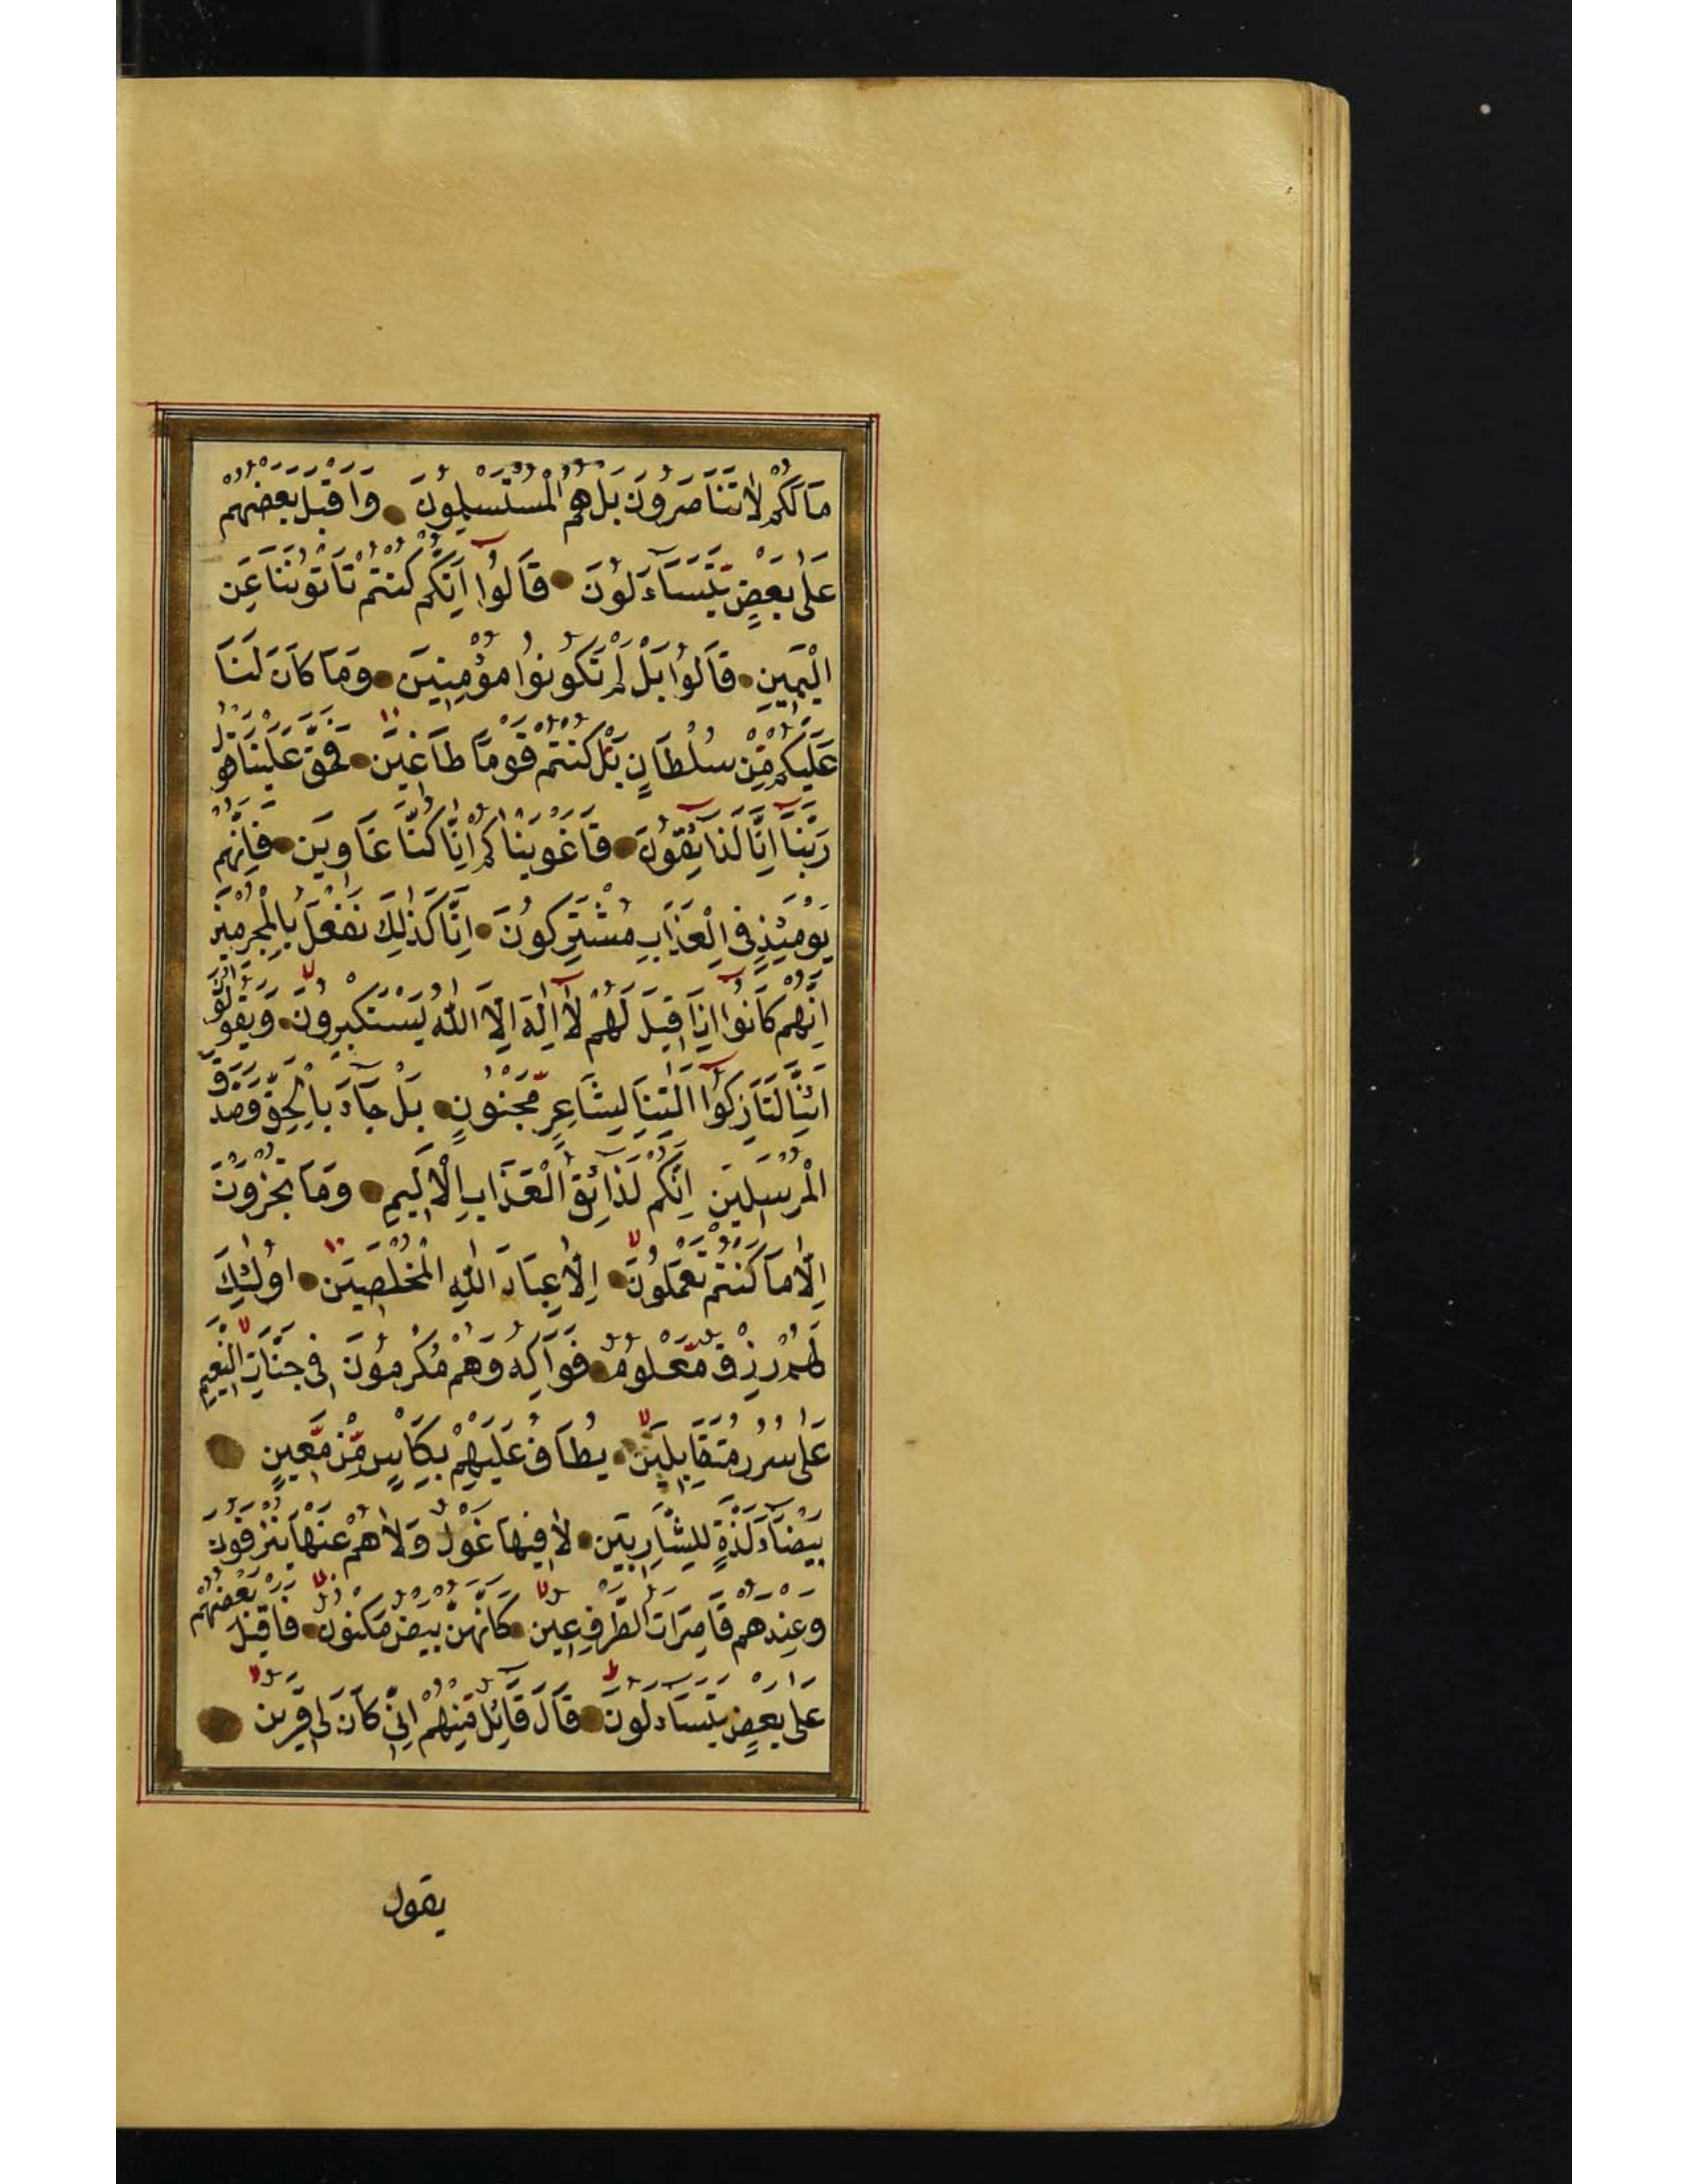 مَا لَكُمْ لَا تَنَاصَرُونَ بَلْ هُمُ الْمُسْتَسْلِمُونَ وَاَقْبَلَ بَعْضُهُمْ
عَلٰى بَعْضٍ يَتَسَآءَلُونَ قَالُوٓا اِنَّكُمْ كُنْتُمْ تَاْتُونَنَا عَنِ
الْيَمِينِ قَالُوا بَلْ لَمْ تَكُونُوا مُؤْمِنِينَ وَمَا كَانَ لَنَا
عَلَيْكُمْ مِنْ سُلْطَانٍ بَلْ كُنْتُمْ قَوْمًا طَاغِينَ فَحَقَّ عَلَيْنَا قَوْلُ
رَبِّنَآ اِنَّا لَذَآئِقُونَ فَاَغْوَيْنَاكُمْ اِنَّا كُنَّا غَاوِينَ فَاِنَّهُمْ
يَوْمَئِذٍ فِى الْعَذَابِ مُشْتَرِكُونَ اِنَّا كَذٰلِكَ نَفْعَلُ بِالْمُجْرِمِينَ
اِنَّهُمْ كَانُوٓا اِذَا قِيلَ لَهُمْ لَآ اِلٰهَ اِلَّا اللّٰهُ يَسْتَكْبِرُونَ وَيَقُولُونَ
اَئِنَّا لَتَارِكُوٓا اٰلِهَتِنَا لِشَاعِرٍ مَجْنُونٍ بَلْ جَآءَ بِالْحَقِّ وَصَدَّقَ
الْمُرْسَلِينَ اِنَّكُمْ لَذَآئِقُوا الْعَذَابِ الْاَلِيمِ وَمَا تُجْزَوْنَ
اِلَّا مَا كُنْتُمْ تَعْمَلُونَ اِلَّا عِبَادَ اللّٰهِ الْمُخْلَصِينَ اُولٰٓئِكَ
لَهُمْ رِزْقٌ مَعْلُومٌ فَوَاكِهُ وَهُمْ مُكْرَمُونَ فِى جَنَّاتِ النَّعِيمِ
عَلٰى سُرُرٍ مُتَقَابِلِينَ يُطَافُ عَلَيْهِمْ بِكَاْسٍ مِنْ مَعِينٍ
بَيْضَآءَ لَذَّةٍ لِلشَّارِبِينَ لَا فِيهَا غَوْلٌ وَلَا هُمْ عَنْهَا يُنْزَفُونَ
وَعِنْدَهُمْ قَاصِرَاتُ الطَّرْفِ عِينٌ كَاَنَّهُنَّ بَيْضٌ مَكْنُونٌ فَاَقْبَلَ بَعْضُهُمْ
عَلٰى بَعْضٍ يَتَسَآءَلُونَ قَالَ قَآئِلٌ مِنْهُمْ اِنِّى كَانَ لِى قَرِينٌ
يقول